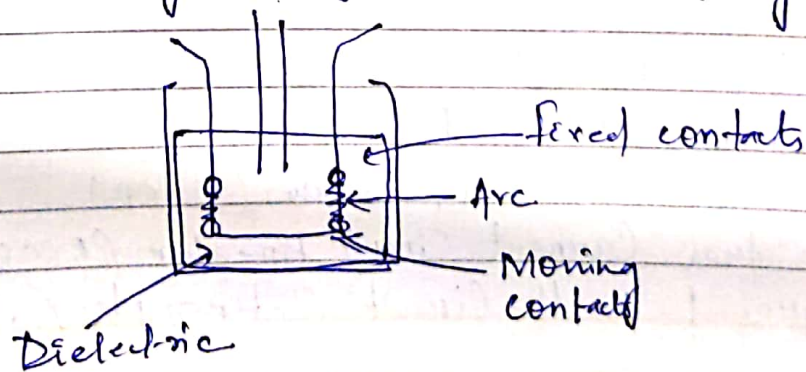 fixed contacts
Arc
Moving
contacts
Dielectric